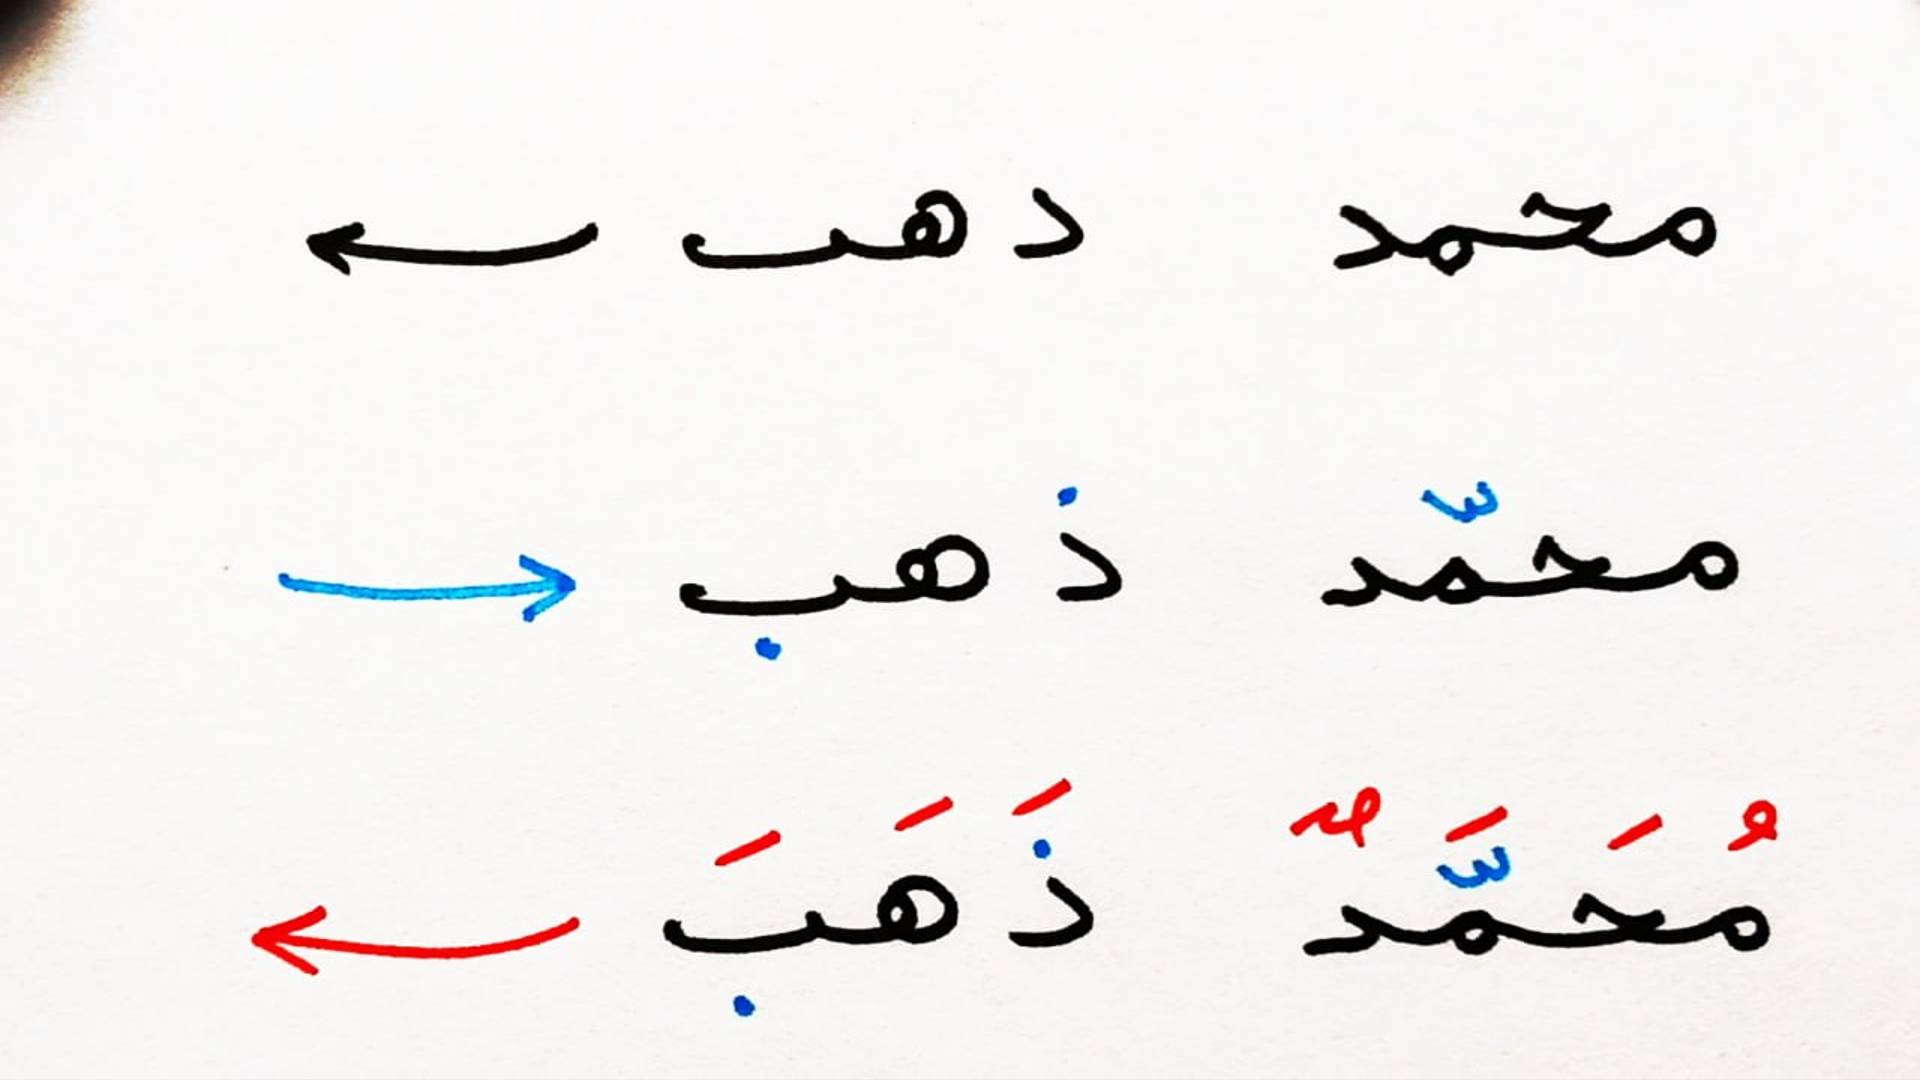 محمد دهٮ
محمّد ذهب
مُحَمَّدٌ ذَهَبَ